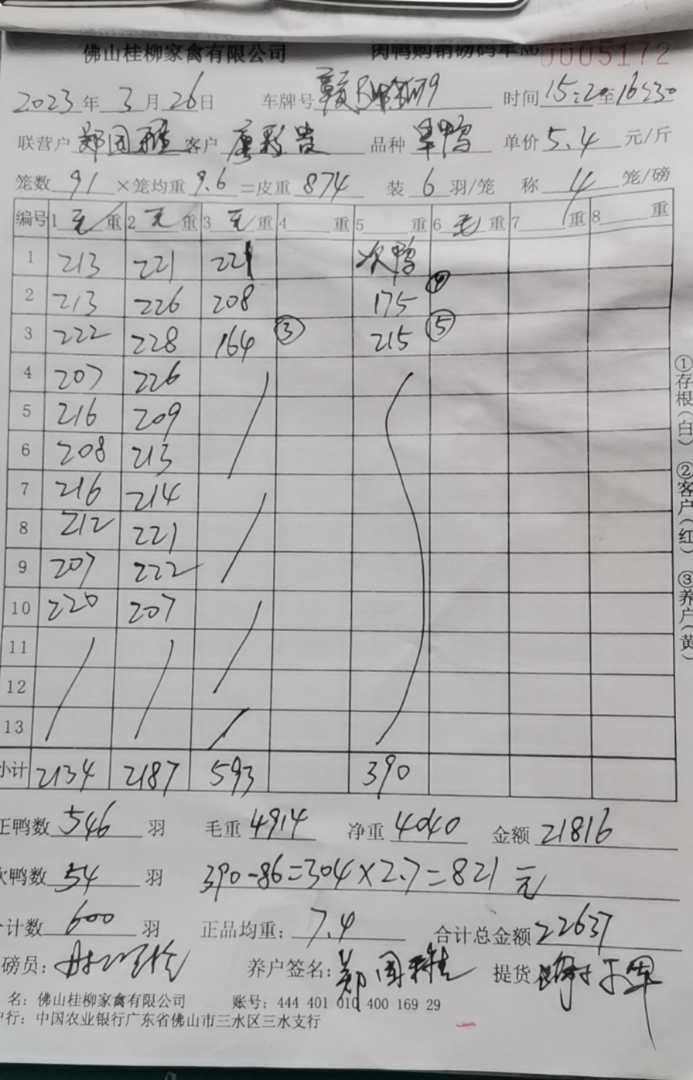 佛山桂柳家禽有限公司 肉鸭购销磅码单 No 0005172
2023年3月26日 车牌号 时间15:20至16:30
联营户 郑国雅 客户 唐彩贵 品种 单价5.4元/斤
笼数91×笼均重9.6=皮重874 装6羽/笼 称4笼/磅
编号 1毛重 2毛重 3毛重 4 重 5 重 6毛重 7 重 8 重
1 213 221 221 次鸭
2 213 226 208 175 ④
3 222 228 164 ③ 215 ⑤
4 207 226
5 216 209
6 208 213
7 216 214
8 212 221
9 207 222
10 220 207
11
12
13
小计 2134 2187 593 390
正鸭数546羽 毛重4914 净重4040 金额21816
次鸭数54羽 390-86=304×2.7=821元
合计数600羽 正品均重:7.4 合计总金额22637
磅员: 养户签名:郑国雅 提货
名:佛山桂柳家禽有限公司 账号:444 401 010 400 169 29
户行:中国农业银行广东省佛山市三水区三水支行
①存根(白) ②客户(红) ③养户(黄)